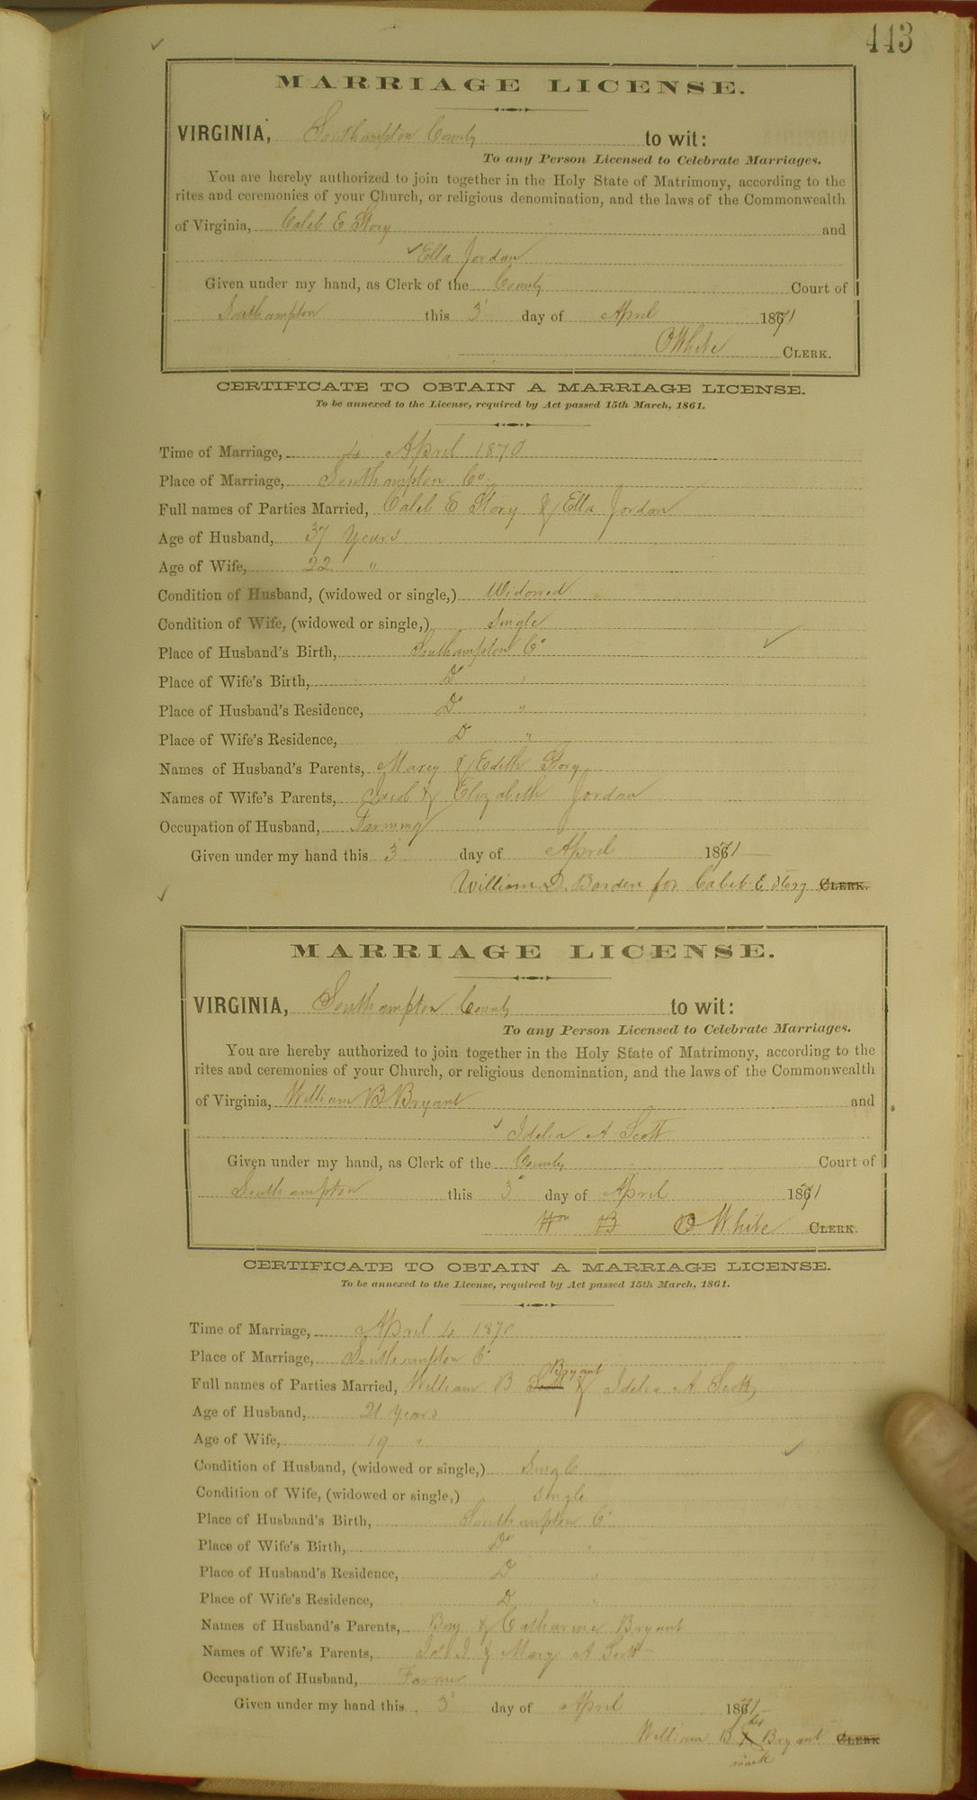 443
MARRIAGE LICENSE.
VIRGINIA, Southampton County to wit:
To any Person Licensed to Celebrate Marriages.
You are hereby authorized to join together in the Holy State of Matrimony, according to the
rites and ceremonies of your Church, or religious denomination, and the laws of the Commonwealth
of Virginia, Caleb E Story and
Ella Jordan
Given under my hand, as Clerk of the County Court of
Southampton this 3 day of April 1871
White CLERK.
CERTIFICATE TO OBTAIN A MARRIAGE LICENSE.
To be annexed to the License, required by Act passed 15th March, 1861.
Time of Marriage, 4 April 1870
Place of Marriage, Southampton Co
Full names of Parties Married, Caleb E Story & Ella Jordan
Age of Husband, 37 Years
Age of Wife, 22 "
Condition of Husband, (widowed or single,) Widowed
Condition of Wife, (widowed or single,) Single
Place of Husband's Birth, Southampton Co
Place of Wife's Birth, Do "
Place of Husband's Residence, Do "
Place of Wife's Residence, D "
Names of Husband's Parents, & Edith Story
Names of Wife's Parents, & Elizabeth Jordan
Occupation of Husband, Farming
Given under my hand this 3 day of April 1871
William D. Barden for Caleb E Story CLERK.
MARRIAGE LICENSE.
VIRGINIA, Southampton County to wit:
To any Person Licensed to Celebrate Marriages.
You are hereby authorized to join together in the Holy State of Matrimony, according to the
rites and ceremonies of your Church, or religious denomination, and the laws of the Commonwealth
of Virginia, William B Bryant and
Idelia A Scott
Given under my hand, as Clerk of the County Court of
Southampton this 3 day of April 1871
Wm B White CLERK.
CERTIFICATE TO OBTAIN A MARRIAGE LICENSE.
To be annexed to the License, required by Act passed 15th March, 1861.
Time of Marriage, April 4 1870
Place of Marriage, Southampton Co
Full names of Parties Married, William B Bryant & Idelia A Scott
Age of Husband, 21 Years
Age of Wife, 19 "
Condition of Husband, (widowed or single,) Single
Condition of Wife, (widowed or single,) Single
Place of Husband's Birth, Southampton Co
Place of Wife's Birth, Do "
Place of Husband's Residence, D "
Place of Wife's Residence, D "
Names of Husband's Parents, & Catharine Bryant
Names of Wife's Parents, & Mary A Scott
Occupation of Husband, Farmer
Given under my hand this 3 day of April 1871
his
William B X Bryant CLERK
mark